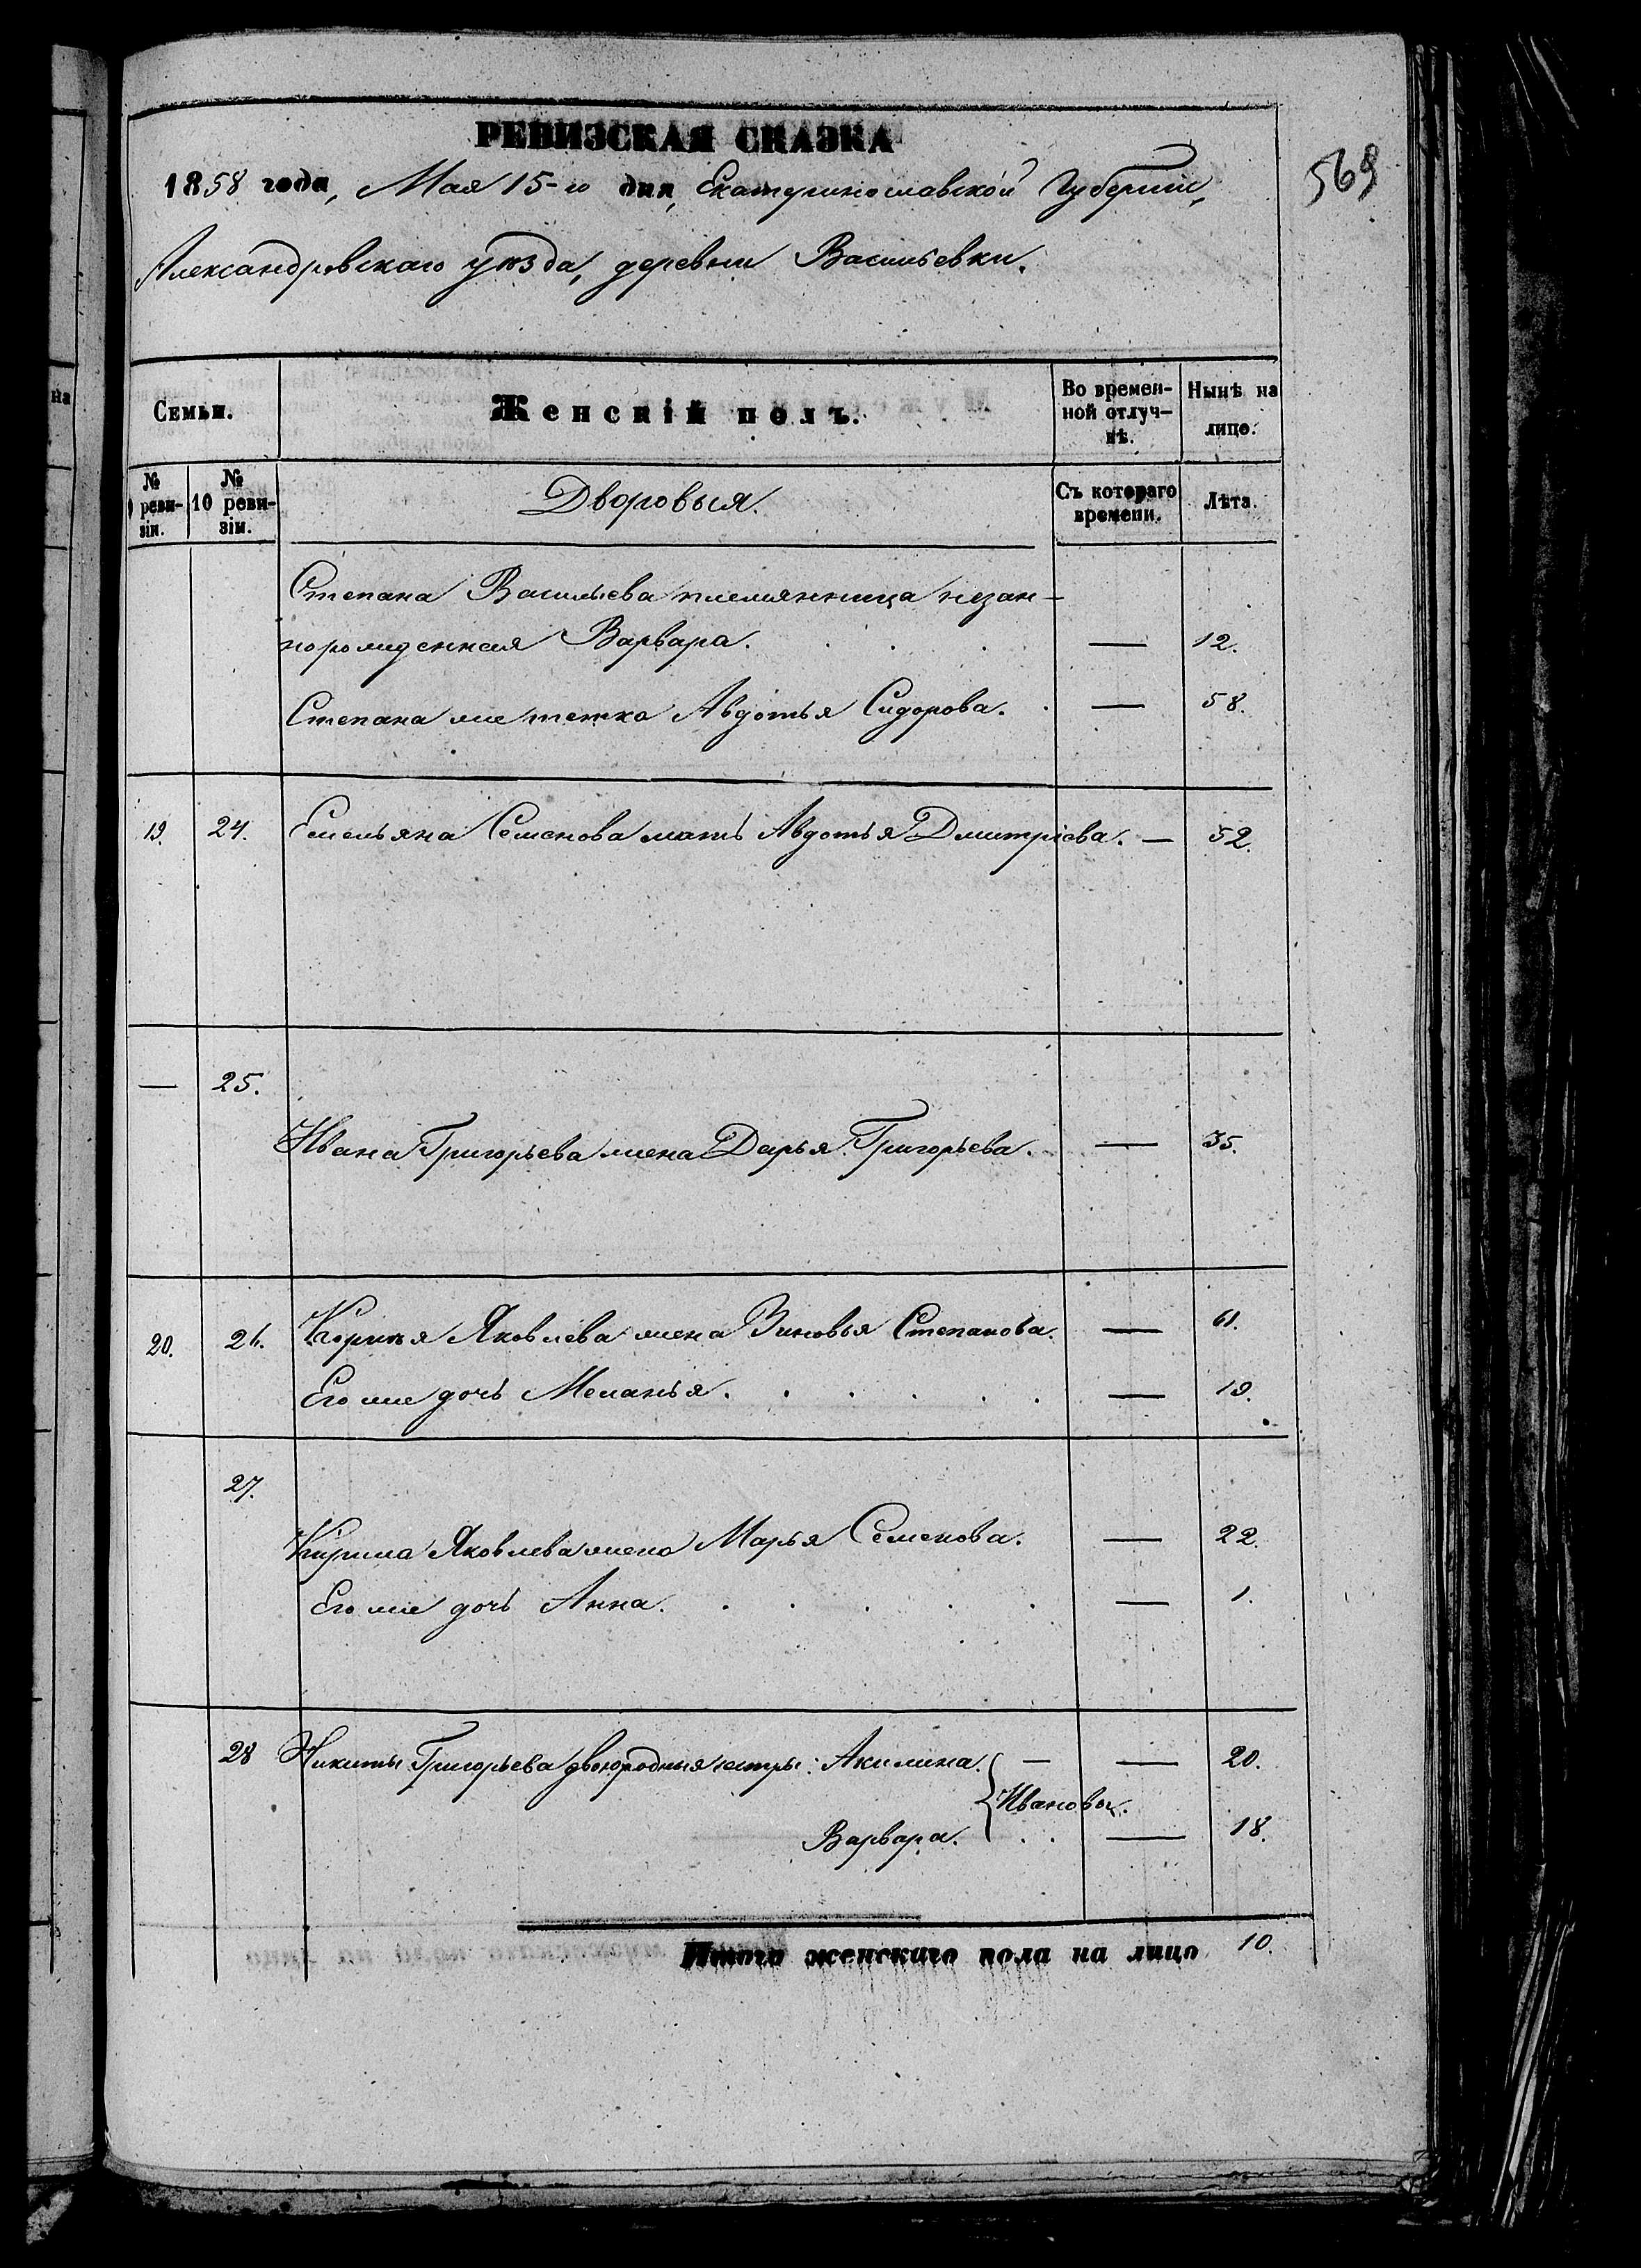 РЕВИЗСКАЯ СКАЗКА
569
1858 года, Мая 15-го дня, Екатеринославской Губерніи,
Александровскаго уѣзда, деревни Васильевки.
Семьи.
Женскій полъ.
Во времен-
ной отлуч-
кѣ.
Нынѣ на
лицо.
№
9 реви-
зіи.
№
10 реви-
зіи.
Дворовыя.
Съ котораго
времени.
Лѣта.
Степана Васильева племянница незакон-
норожденная Варвара. — 12.
Степана же тетка Авдотья Сидорова. — 58.
19. 24. Емельяна Семенова мать Авдотья Дмитріева. — 52.
— 25.
Ивана Григорьева жена Дарья Григорьева. — 35.
20. 26. Яковлева жена Зиновья Степанова. — 61.
Его же дочь Меланья. — 19.
27.
Кирила Яковлева жена Марья Семенова. — 22.
Его же дочь Анна. — 1.
28 Никиты Григорьева двоюродныя сестры: Акилина. — — 20.
Ивановы.
Варвара. — 18.
Итого женскаго пола на лицо 10.
на